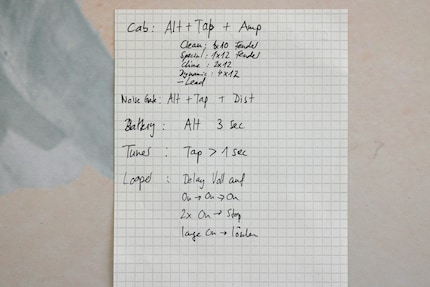 Cab: Alt + Tap + Amp
Clean: 4x10 Fender
Special: 1x12 Fender
Chime: 2x12
Dynamic: 4x12
- Lead
Noise Gate: Alt + Tap + Dist
Battery: Alt 3 sec
Tuner: Tap > 1 sec
Looper: Delay Voll auf
On → On → On
2x On → Stop
lange On → löschen